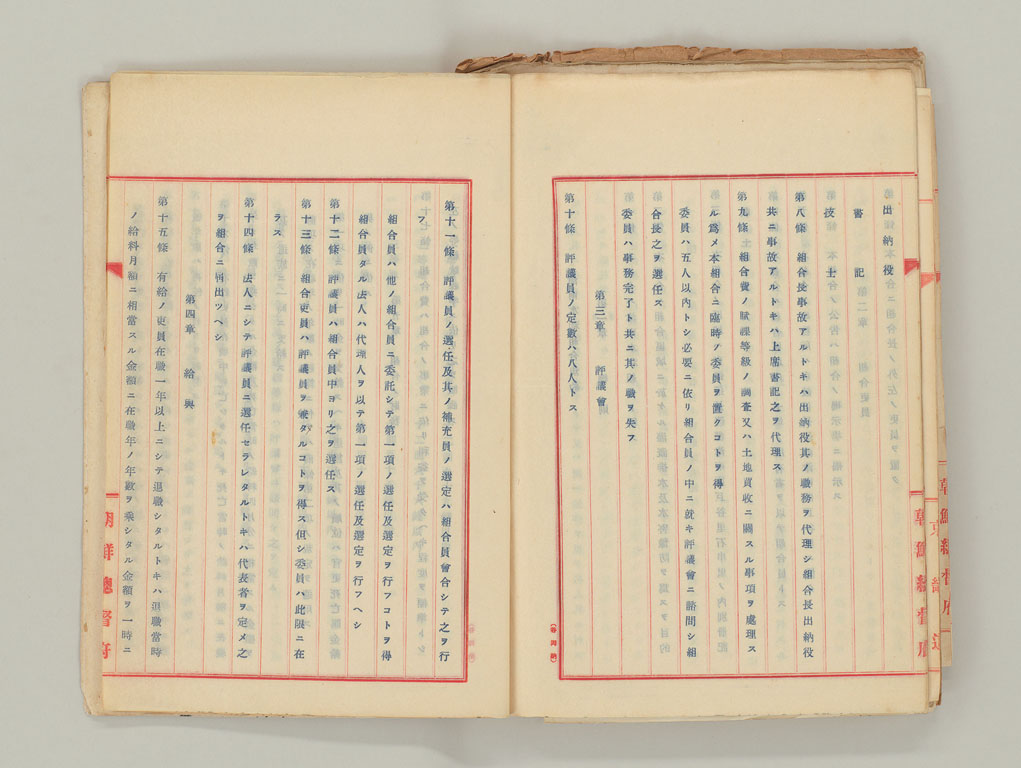 出納役
書記
技士
第八條 組合長事故アルトキハ出納役其ノ職務ヲ代理シ組合長出納役
共ニ事故アルトキハ上席書記之ヲ代理ス
第九條 組合費ノ賦課等級ノ調査又ハ土地買收ニ關スル事項ヲ處理ス
ル爲メ本組合ニ臨時ノ委員ヲ置クコトヲ得
委員ハ五人以内トシ必要ニ依リ組合員ノ中ニ就キ評議會ニ諮問シ組
合長之ヲ選任ス
委員ハ事務完了ト共ニ其ノ職ヲ失フ
第三章 評議會
第十條 評議員ノ定數ハ八人トス
第十一條 評議員ノ選任及其ノ補充員ノ選定ハ組合員會合シテ之ヲ行
フ
組合員ハ他ノ組合員ニ委託シテ第一項ノ選任及選定ヲ行フコトヲ得
組合員タル法人ハ代理人ヲ以テ第一項ノ選任及選定ヲ行フヘシ
第十二條 評議員ハ組合員中ヨリ之ヲ選任ス
第十三條 組合吏員ハ評議員ヲ兼ヌルコトヲ得ス但シ委員ハ此限ニ在
ラス
第十四條 法人ニシテ評議員ニ選任セラレタルトキハ代表者ヲ定メ之
ヲ組合ニ屆出ツヘシ
第四章 給與
第十五條 有給ノ吏員在職一年以上ニシテ退職シタルトキハ退職當時
ノ給料月額ニ相當スル金額ニ在職年ノ年數ヲ乘シタル金額ヲ一時ニ
朝鮮總督府
朝鮮總督府